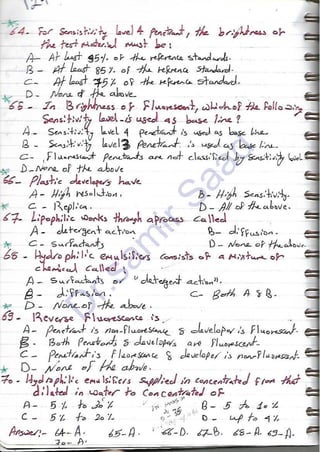 64- For Sensistivity level 4 Penetrant, the brightness of
the test material must be:
A- At least 95% of the reference standard.
B- At least 85% of the reference standard.
C- At least 75% of the reference standard.
D- None of the above
65- In Brightness of Fluorescent, which of the Following
Sensitivity level is used as base line?
A- Sensitivity level 4 Penetrant is used as base line
B- Sensitivity level 3 Penetrant is used as base line.
C- Fluorescent Penetrants are not classified by Sensitivity level
D- None of the above
66- Plastic developers have
A- High resolution. B- High Sensitivity.
C- Replica. D- All of the above.
67- Lipophilic works through a process called
A- detergent action B- diffusion.
C- Surfactants D- None of the above.
68- Hydrophilic emulsifiers consists of a mixture of
chemical called:
A- Surfactants or "detergent action".
B- diffusion. C- Both A & B.
D- None of the above.
69- Reverse Fluorescence is
A- Penetrant is non-Fluorescence & developer is Fluorescent.
B- Both Penetrants & developers are Fluorescent.
C- Penetrant is Fluorescence & developer is non-Fluorescent.
D- None of the above.
70- Hydrophilic emulsifiers supplied in concentrated From that
diluted in water to Concentrated of
A- 5% to 30% B- 5 to 10%
C- 5% to 20% D- up to 4%
Answer:- 64-A. 65-A. 66-D. 67-B. 68-A. 69-A.
70-A.
Samir Saad